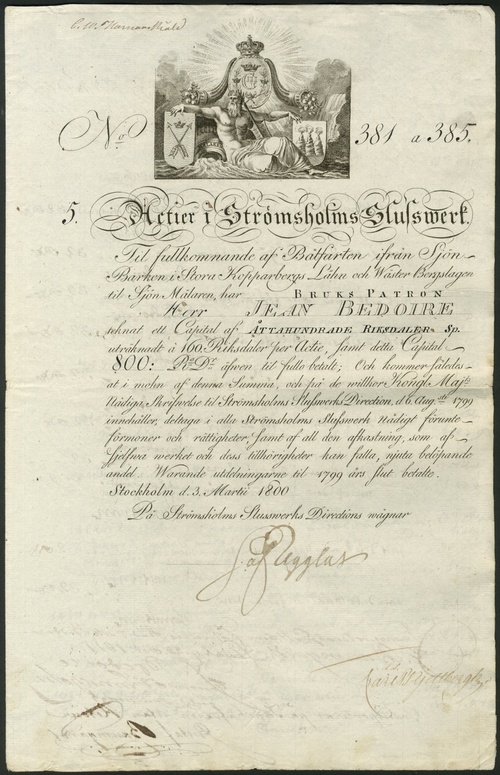 C. W. Hammarskiöld
No. 381 a 385.
5. Actier i Strömsholms Slusswerk.
Til fullkomnande af Båtfarten ifrån Sjön
Barken i Stora Kopparbergs Lähn och Wäster Bergslagen
til Sjön Mälaren, har BRUKS PATRON
Herr JEAN BEDOIRE
teknat ett Capital af ÅTTAHUNDRADE RIKSDALER Sp.
uträknadt à 160 Riksdaler per Actie, samt detta Capital
800: R.D.r äfwen til fullo betalt; Och kommer således
at i mohn af denna Summa, och på de willkor Kongl. Maj.ts
Nådiga Skrifwelse til Strömsholms Slusswerks Direction, d. 6 Aug.sti 1799
innehåller, deltaga i alla Strömsholms Slusswerk Nådigt förunte
förmoner och rättigheter, samt af all den afkastning, som af
sjelfwa werket och dess tillhörigheter kan falla, njuta belöpande
andel. Warande utdelningarne til 1799 års slut betalte.
Stockholm d. 3. Martii 1800
På Strömsholms Slusswerks Directions wägnar
S. af Ugglas